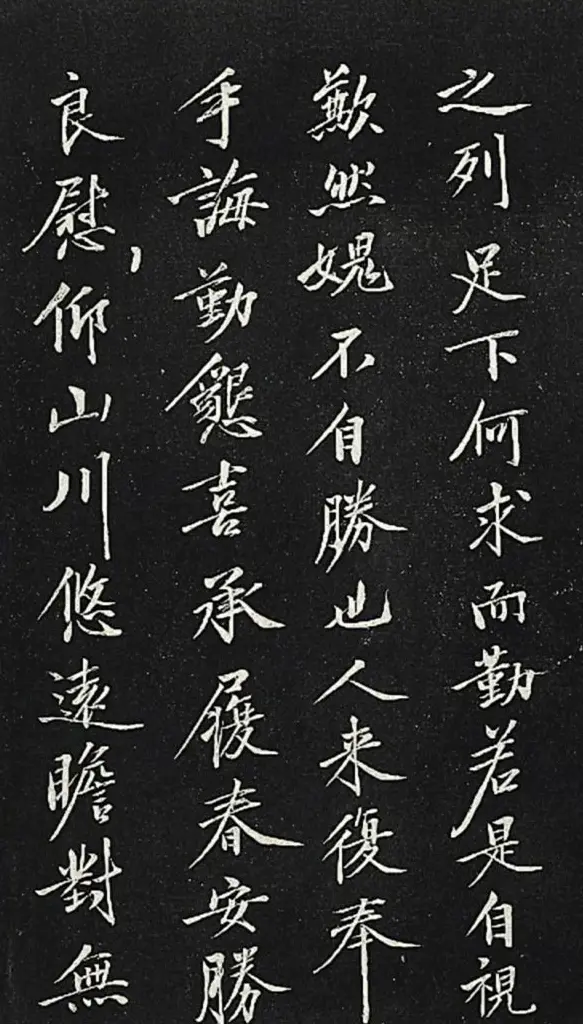 之列足下何求而勤若是自視
歉然媿不自勝也人来復奉
手誨勤懇喜承履春安勝
良慰仰山川悠遠瞻對無